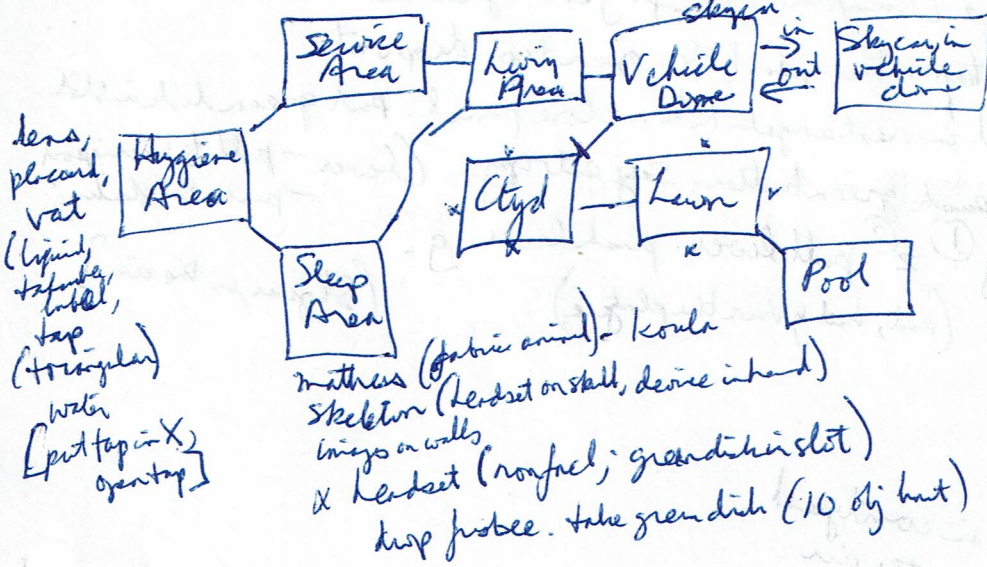 skycar
Service
Area
Living
Area
Vehicle
Dome
in
out
Skycar, in
vehicle
dome
lens,
placard,
vat
(liquid,
label,
tap
(triangular)
water
[put tap in X,
open tap]
Hygiene
Area
Ctyd
Lawn
Pool
Sleep
Area
mattress (fabric animal) - koala
skeleton (headset on skull, device in hand)
images on walls
x headset (nonfnel; green disk in slot)
drop frisbee. take green disk (10 obj limit)